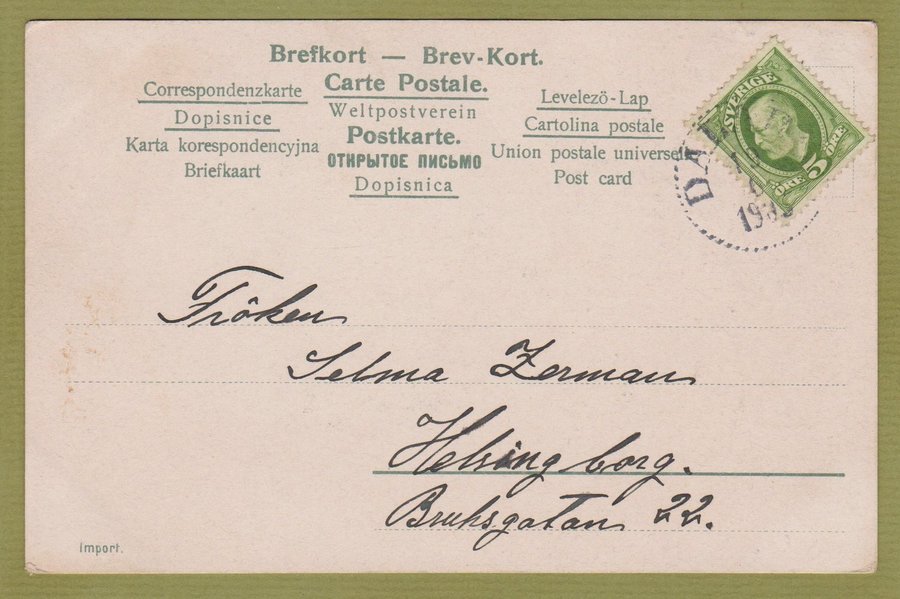 Brefkort — Brev-Kort.
Carte Postale.
Weltpostverein
Postkarte.
ОТКРЫТОЕ ПИСЬМО
Dopisnica
Correspondenzkarte
Dopisnice
Karta korespondencyjna
Briefkaart
Levelezö-Lap
Cartolina postale
Union postale universelle
Post card
SVERIGE
5
ÖRE ÖRE
Fröken
Selma Zerman
Helsingborg.
Bruksgatan 22.
Import.